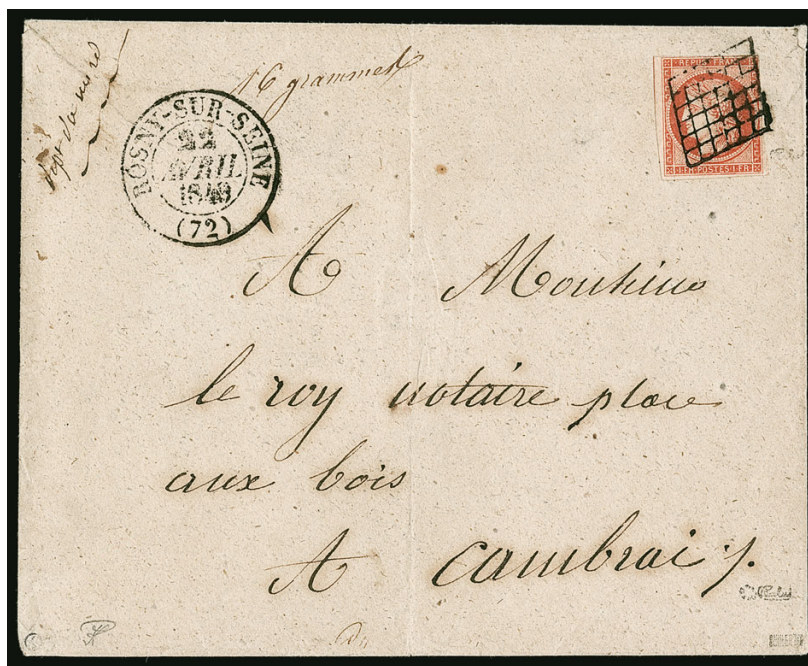 16 grammes
ROSNY-SUR-SEINE
22
AVRIL
1849
(72)
REPUB. FRANC.
1·FR·POSTES·1·FR·
A Monsieur
le roy notaire place
aux bois
A Cambrai